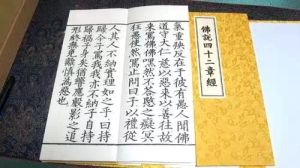 氣重殃反在于彼有愚人聞佛
道守大仁慈以惡來以善往故
來罵佛佛嘿然不答愍之癡冥
狂愚使然罵止問曰子以禮從
人其人不納實理如之乎曰持
歸今子罵我我亦不納子自持
歸禍子身矣猶響應聲影之追
形終無免離慎為惡也
佛説四十二章經